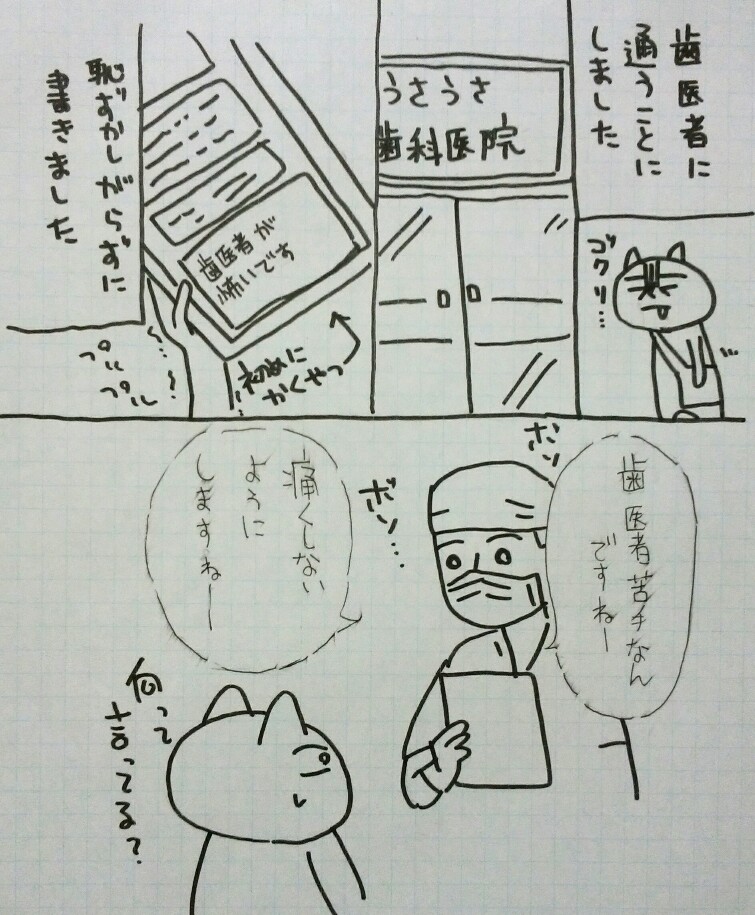 歯医者に
通うことに
しました
ゴクリ…
うさうさ
歯科医院
歯医者が
怖いです
初めに
かくやつ
プル
プル
恥ずかしがらずに
書きました
歯医者苦手なん
ですねー
ボソ
ボソ…
痛くしない
ように
しますねー
何って
言ってる?